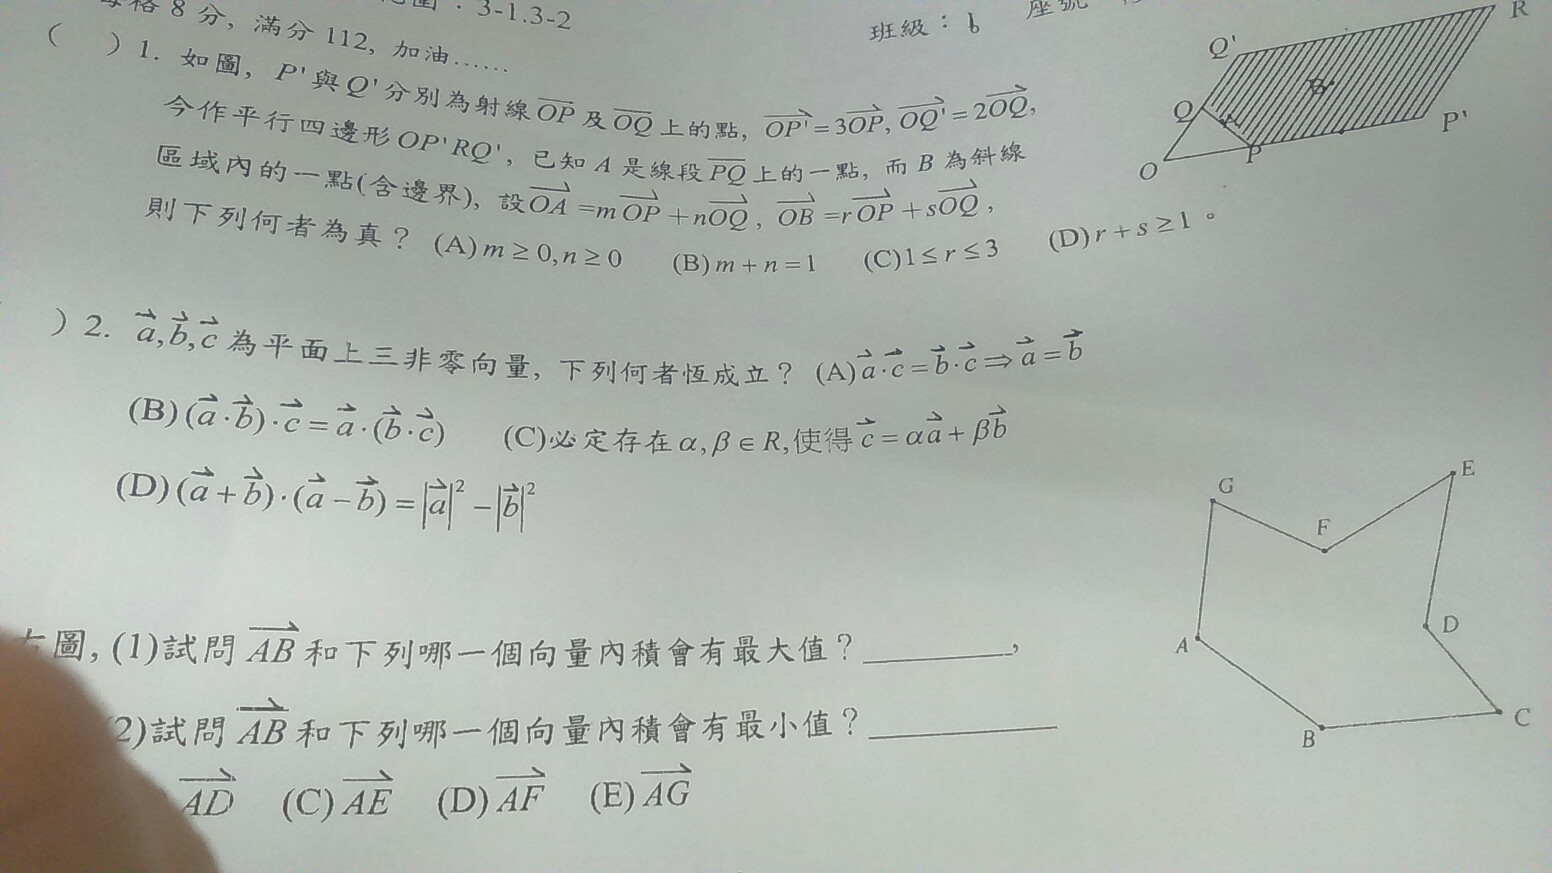 3-1.3-2
8 分, 滿分 112, 加油……
班級：6 座號
( ) 1. 如圖, P'與Q'分別為射線OP及OQ上的點, OP'=3OP, OQ'=2OQ,
今作平行四邊形OP'RQ', 已知A是線段PQ上的一點, 而B為斜線
區域內的一點(含邊界), 設OA=mOP+nOQ, OB=rOP+sOQ,
則下列何者為真？ (A) m≥0,n≥0 (B) m+n=1 (C)1≤r≤3 (D)r+s≥1。
Q' R Q B A P P' O
) 2. a,b,c為平面上三非零向量, 下列何者恆成立？ (A) a·c=b·c⇒a=b
(B) (a·b)·c=a·(b·c) (C)必定存在α,β∈R,使得c=αa+βb
(D) (a+b)·(a−b)=|a|²−|b|²
G E F A D B C
右圖, (1)試問AB和下列哪一個向量內積會有最大值？________,
(2)試問AB和下列哪一個向量內積會有最小值？________
AD (C) AE (D) AF (E) AG